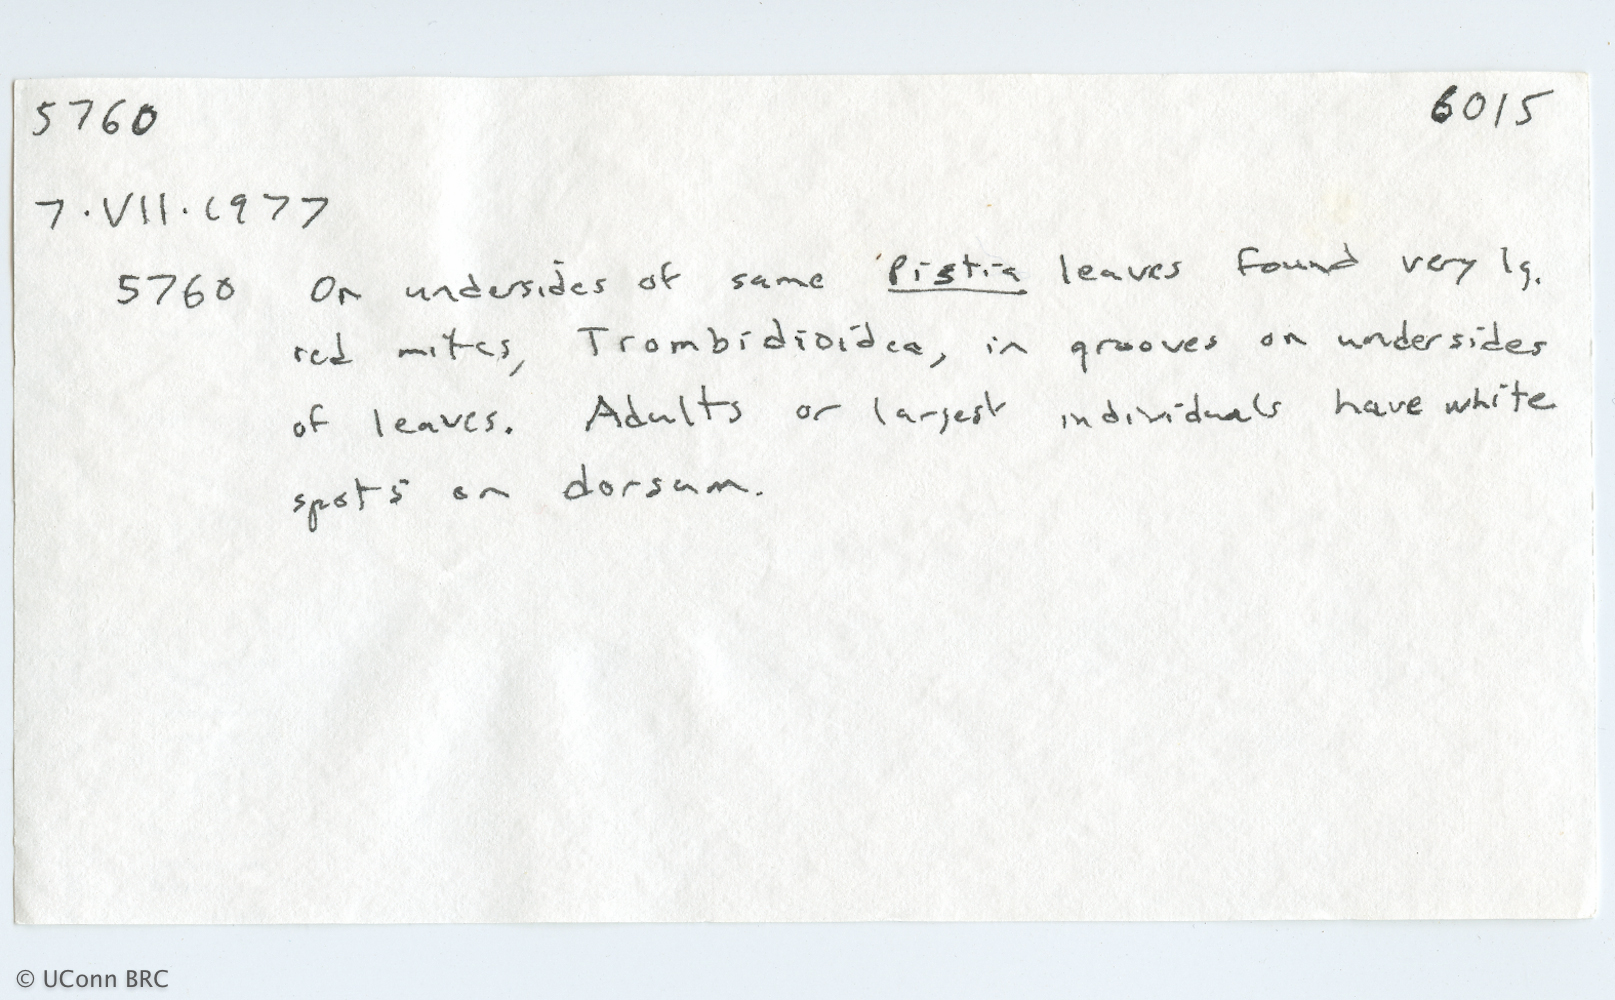 5760 6015
7.VII.1977
5760 On undersides of same Pistia leaves found very lg.
red mites, Trombidioidea, in grooves on undersides
of leaves. Adults or largest individuals have white
spots on dorsum.
© UConn BRC